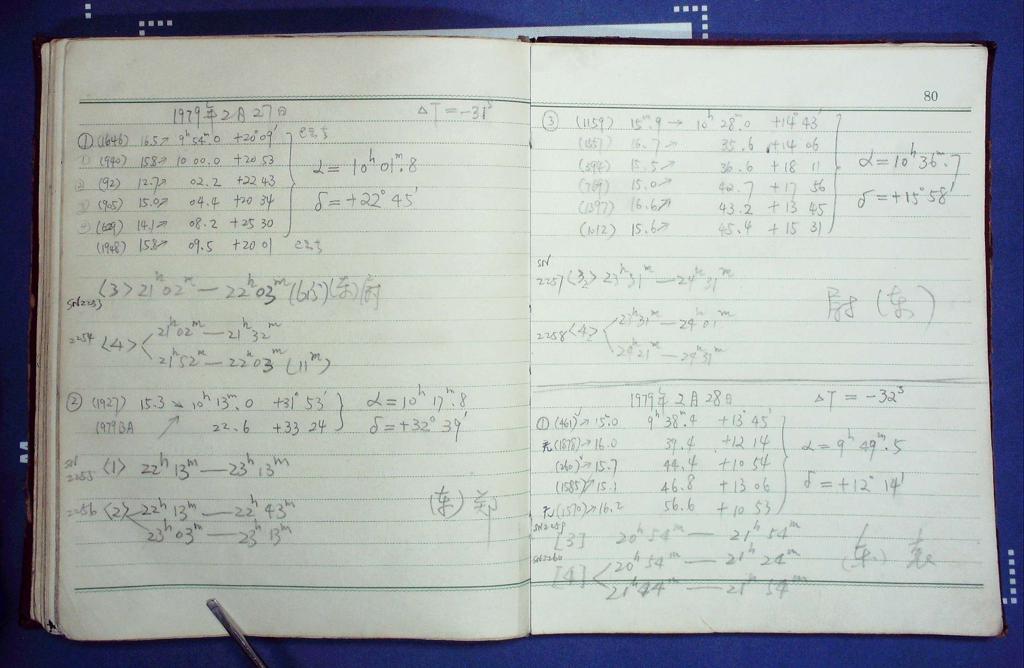 1979年2月27日 ΔT=-31ˢ
① (1646) 16.5↗ 9ʰ54ᵐ.0 +20°09′
(940) 15.8→ 10 00.0 +20 53
(92) 12.7↗ 02.2 +22 43
(905) 15.0↗ 04.4 +20 34
14.1→ 08.2 +25 30
(1948) 15.8→ 09.5 +20 01
α=10ʰ01ᵐ.8
δ=+22°45′
SN2253 <3> 21ʰ02ᵐ—22ʰ03ᵐ (61.5) (东)
2254 <4> 21ʰ02ᵐ—21ʰ32ᵐ
21ʰ52ᵐ—22ʰ03ᵐ (11ᵐ)
② (1927) 15.3↘ 10ʰ13ᵐ.0 +31°53′
1979BA ↗ 22.6 +33 24
α=10ʰ17ᵐ.8
δ=+32°39′
SN2255 <1> 22ʰ13ᵐ—23ʰ13ᵐ
2256 <2> 22ʰ13ᵐ—22ʰ43ᵐ
23ʰ03ᵐ—23ʰ13ᵐ
(东) 郑
80
③ (1159) 15ᵐ.9→ 10ʰ28ᵐ.0 +14°43′
(1551) 16.7↗ 35.6 +14 06
15.5↗ 36.6 +18 11
(769) 15.0↗ 42.7 +17 56
(1397) 16.6↗ 43.2 +13 45
15.6↗ 45.4 +15 31
α=10ʰ36ᵐ.7
δ=+15°58′
SN2257 <3> 23ʰ31ᵐ—24ʰ31ᵐ
2258 <4> 23ʰ31ᵐ—24ʰ01ᵐ
24ʰ21ᵐ—24ʰ31ᵐ
(东)
1979年2月28日 ΔT=-32ˢ
① (461) 15.0 9ʰ38ᵐ.4 +13°45′
无(1878)→16.0 39.4 +12 14
(260)→15.7 44.4 +10 54
(1585) 15.1 46.8 +13 06
无(1570)→16.2 56.6 +10 53
α=9ʰ49ᵐ.5
δ=+12°14′
SN2259 [3] 20ʰ54ᵐ—21ʰ54ᵐ
SN2260 [4] 20ʰ54ᵐ—21ʰ24ᵐ
21ʰ44ᵐ—21ʰ54ᵐ
(东) 袁